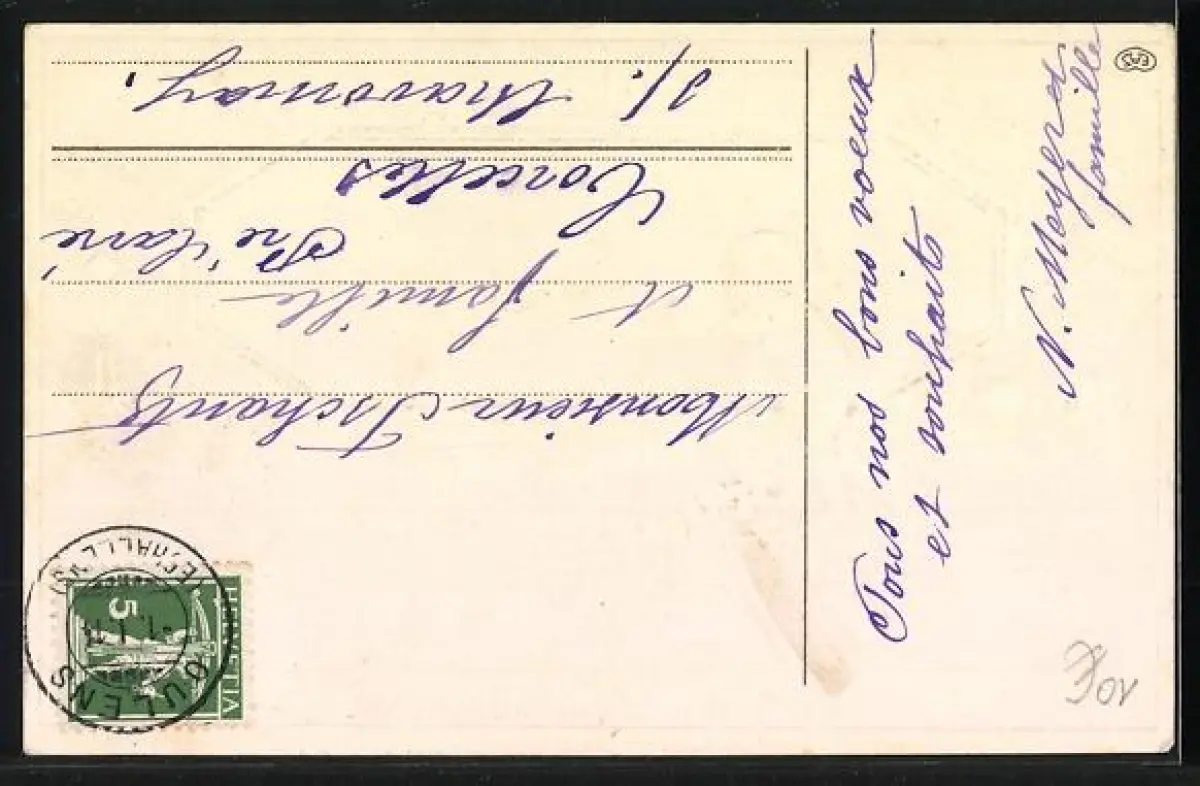 Tous nos bons voeux
et souhaits
N. Meyer et
famille
Monsieur Tschantz
et famille
Pré
Corcelles
s/. Chavornay.
HELVETIA
5
OULENS
(ECHALLENS)
EAS